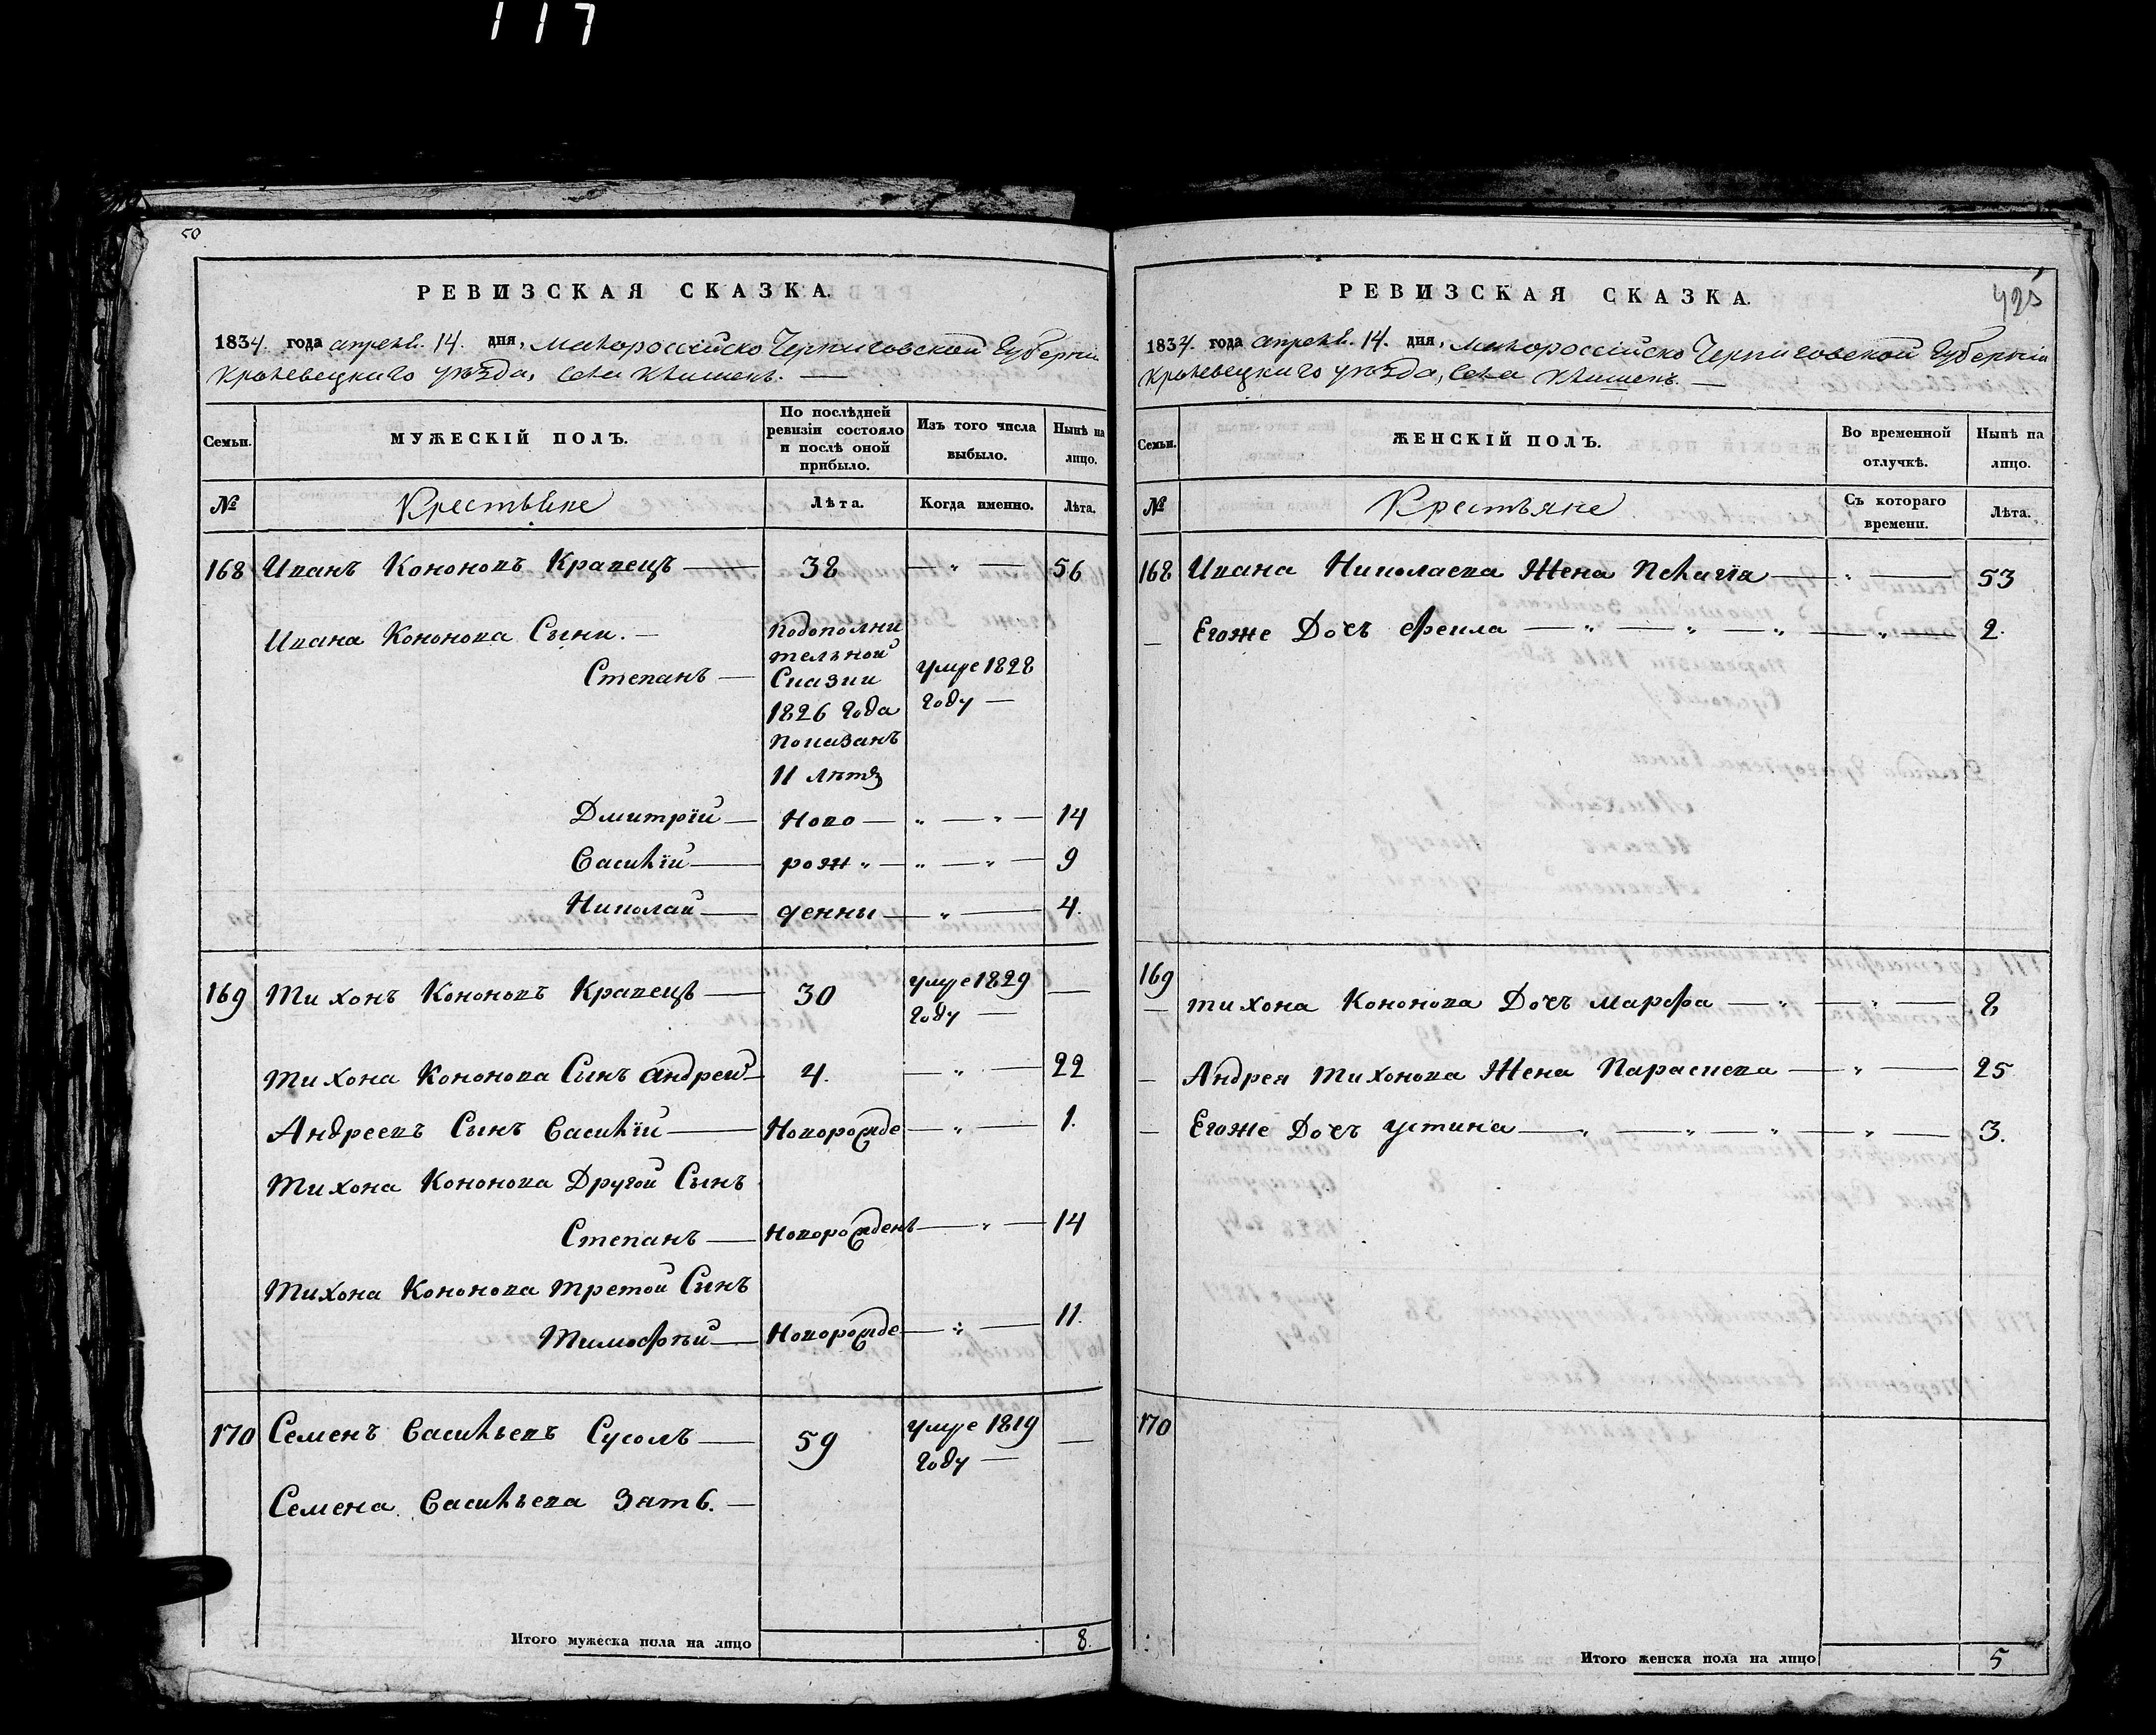 117
50
РЕВИЗСКАЯ СКАЗКА.
1834. года апреля. 14. дня, малороссійско Черниговской Губерніи
Кролевецкаго уезда, села Клишекъ. —
Семьи.
МУЖЕСКІЙ ПОЛЪ.
По послѣдней ревизіи состояло и послѣ оной прибыло.
Изъ того числа выбыло.
Нынѣ на лицо.
№
Крестьяне
Лѣта.
Когда именно.
Лѣта.
168 Иванъ Кононовъ Кравецъ — 38 — " — 56
Ивана Кононова Сыни. —
Степанъ — Подополни
тельной
Сказки
1826 года
Показанъ
11 лѣтъ
умре 1828
году —
Дмитрїй — Ново — " — " — 14
Василїй — рож " — " — " — 9
Николай — денны — " — 4.
169 Тихонъ Кононовъ Кравецъ — 30 умре 1829 —
году —
Тихона Кононова Сынъ Андрей — 4. — " — 22
Андреевъ Сынъ Василїй — Новорожде — " — 1.
Тихона Кононова Другой Сынъ
Степанъ — Новорожденъ — " — 14
Тихона Кононова третой Сынъ
Тимофѣй — Новорожде — " — 11.
170 Семенъ Васильевъ Сусолъ — 59 умре 1819 —
году —
Семена Васильева Зать. —
Итого мужеска пола на лицо 8.
РЕВИЗСКАЯ СКАЗКА.
425
1834. года апреля. 14. дня, малороссійско Черниговской Губерніи
Кролевецкаго уезда, села Клишекъ. —
Семьи.
ЖЕНСКІЙ ПОЛЪ.
Во временной отлучкѣ.
Нынѣ на лицо.
№
Крестьяне
Съ котораго времени.
Лѣта.
168 Ивана Николаева Жена Пелагїя — " — 53
— Егоже Дочъ Фекла — " — " — " — " — 2.
169
— тихона Кононова Дочъ марфа — " — " — 8
— Андрея Тихонова Жена Параскева — " — 25
— Егоже Дочъ устина — " — " — " — " — 3.
170
Итого женска пола на лицо 5